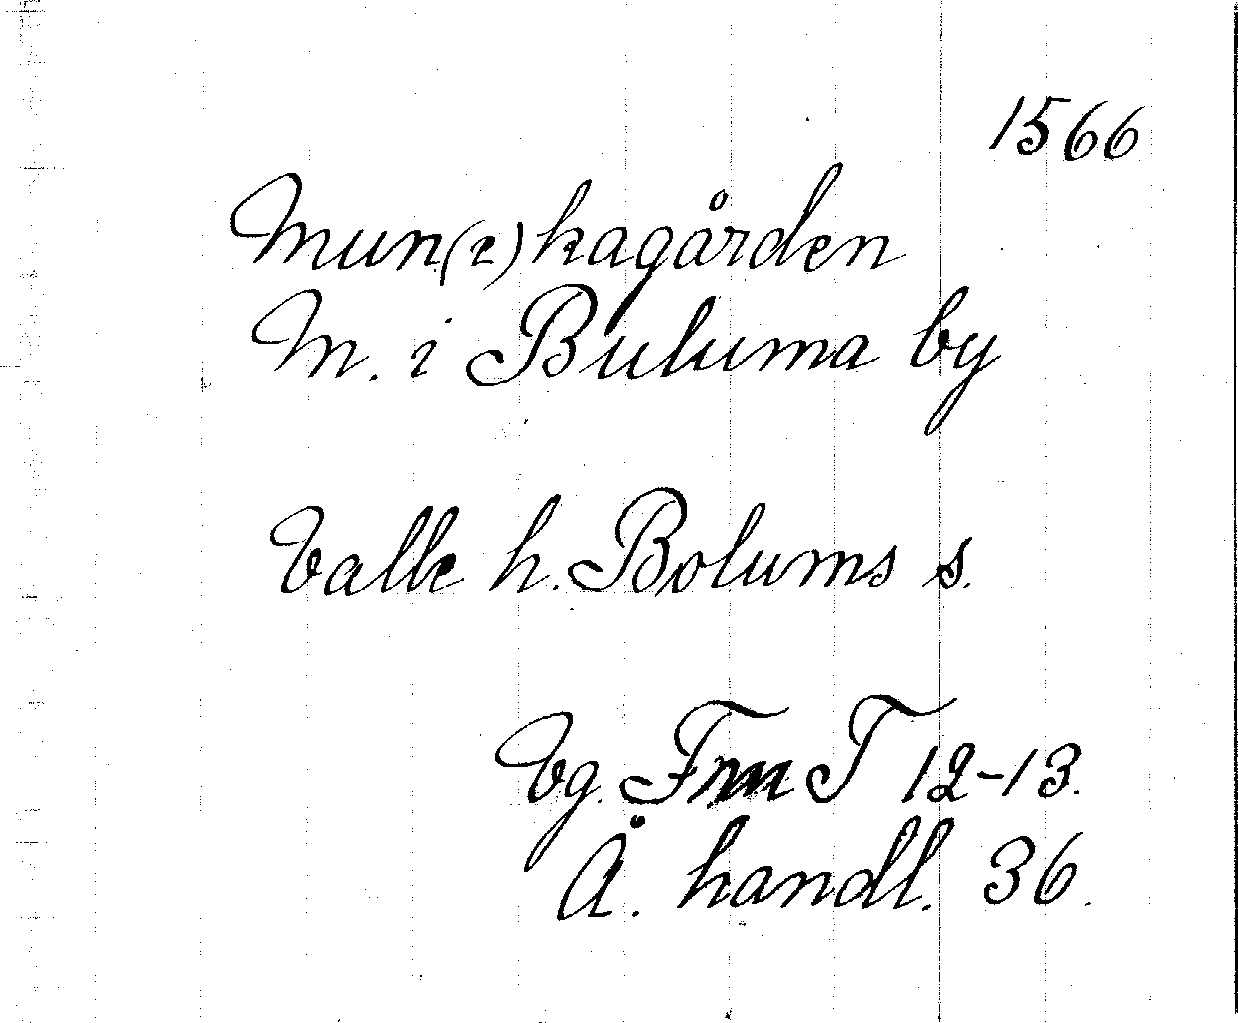 1566
Mun(c)kagården
M. i Buluma by
Valle h. Bolums s.
Vg. Frn T 12-13.
Å. handl. 36.